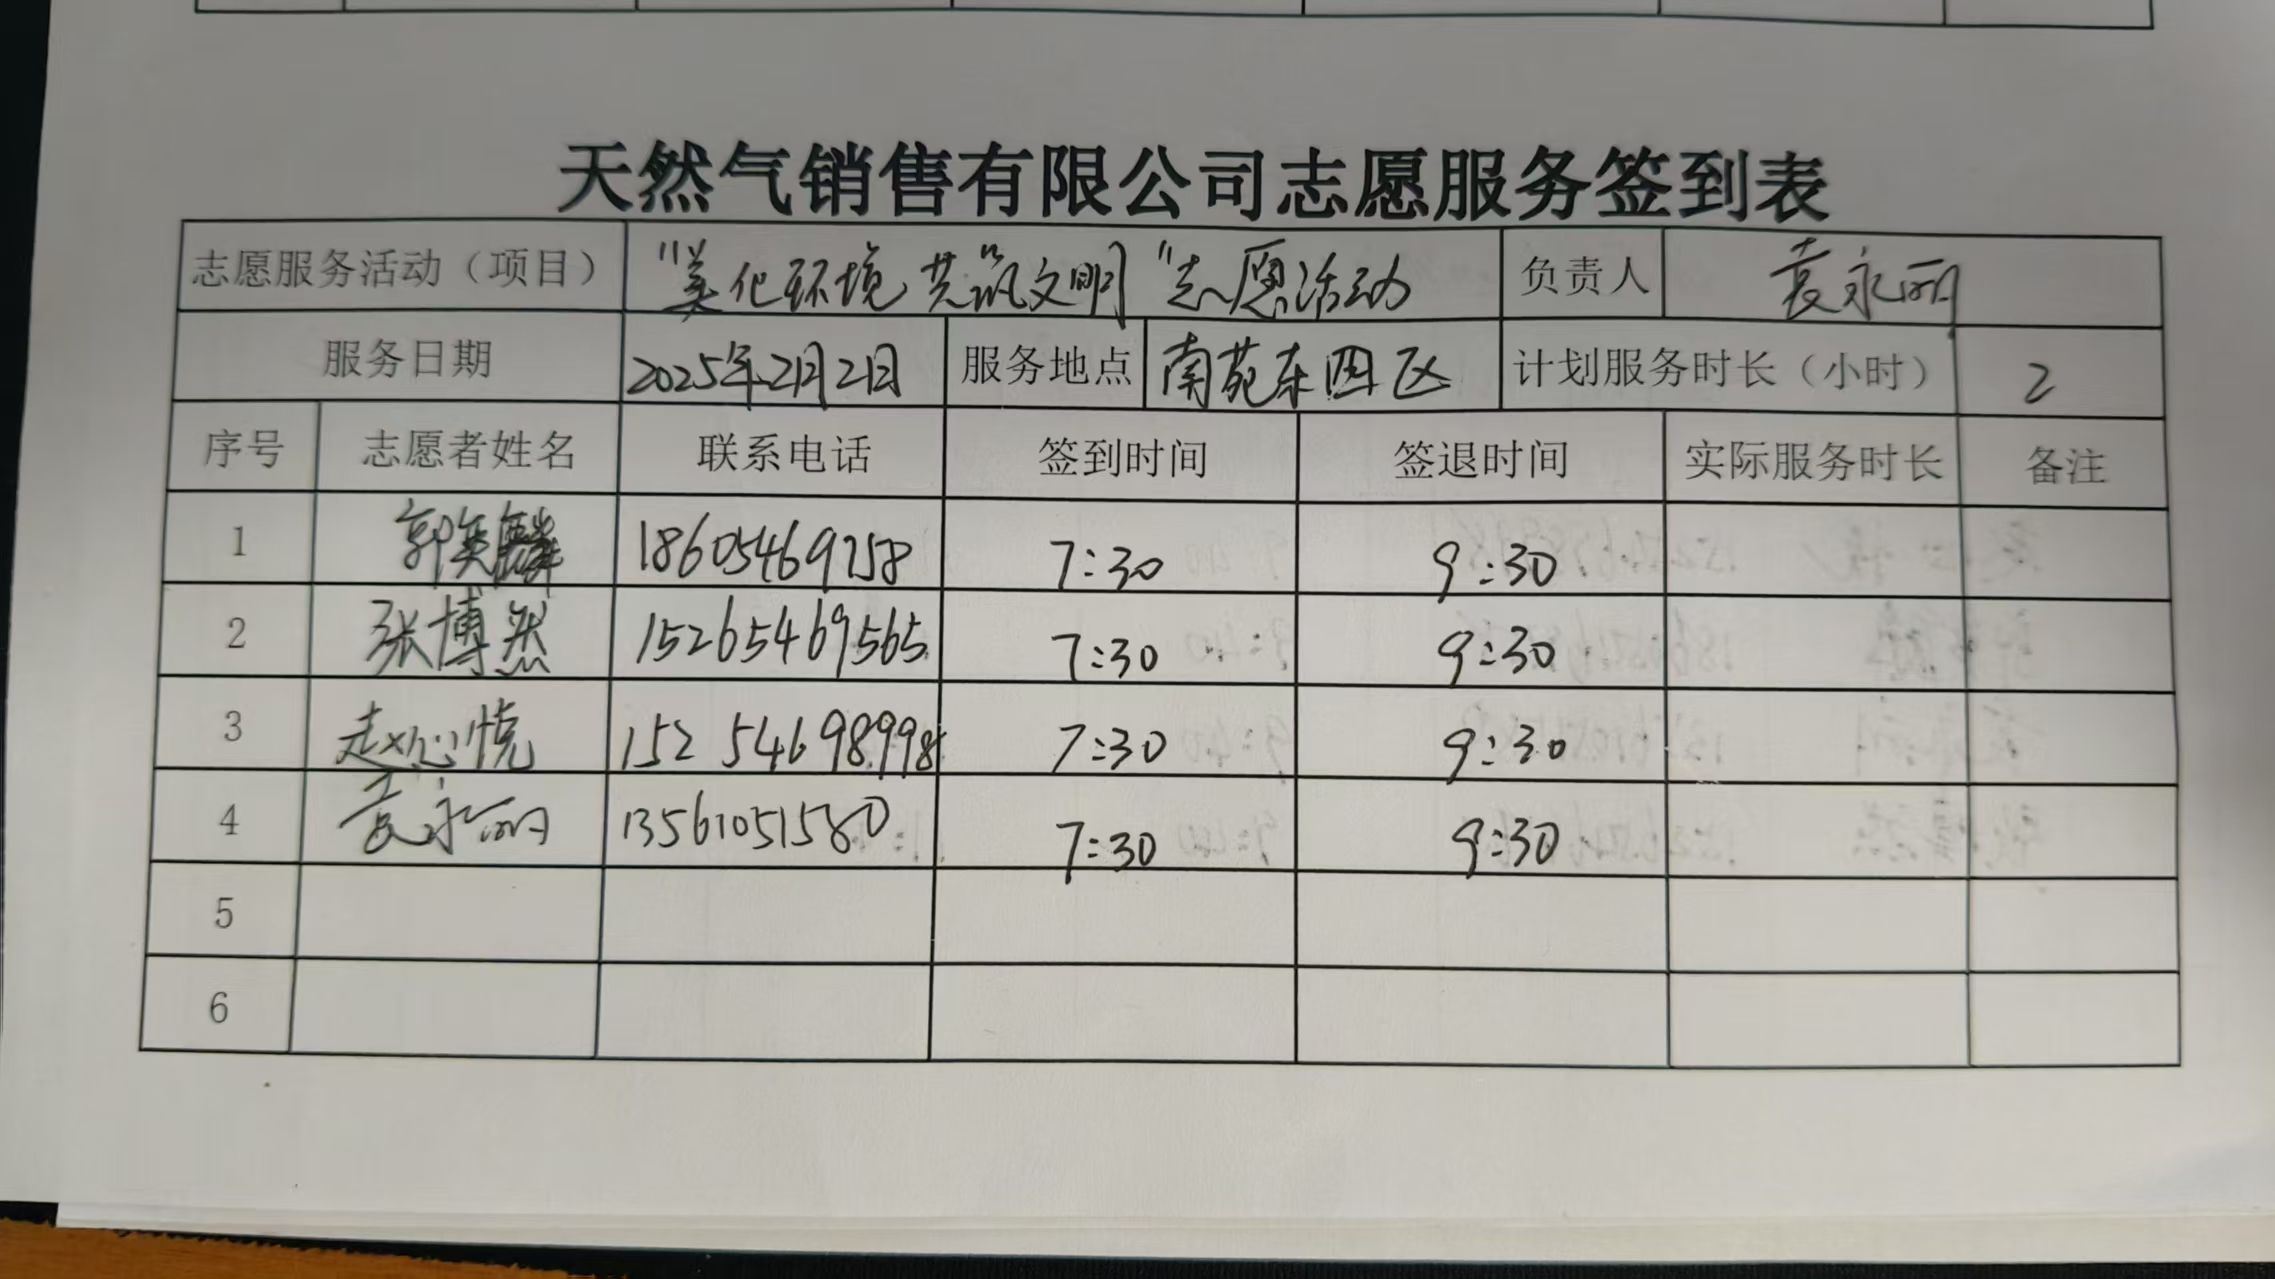 天然气销售有限公司志愿服务签到表
志愿服务活动（项目） "美化环境 共筑文明"志愿活动 负责人 袁永丽
服务日期 2025年2月2日 服务地点 南苑东四区 计划服务时长（小时） 2
序号 志愿者姓名 联系电话 签到时间 签退时间 实际服务时长 备注
1 郭英麟 18605469758 7:30 9:30
2 张博然 15265469565 7:30 9:30
3 赵心悦 152 54698998 7:30 9:30
4 袁永丽 13561051580 7:30 9:30
5
6